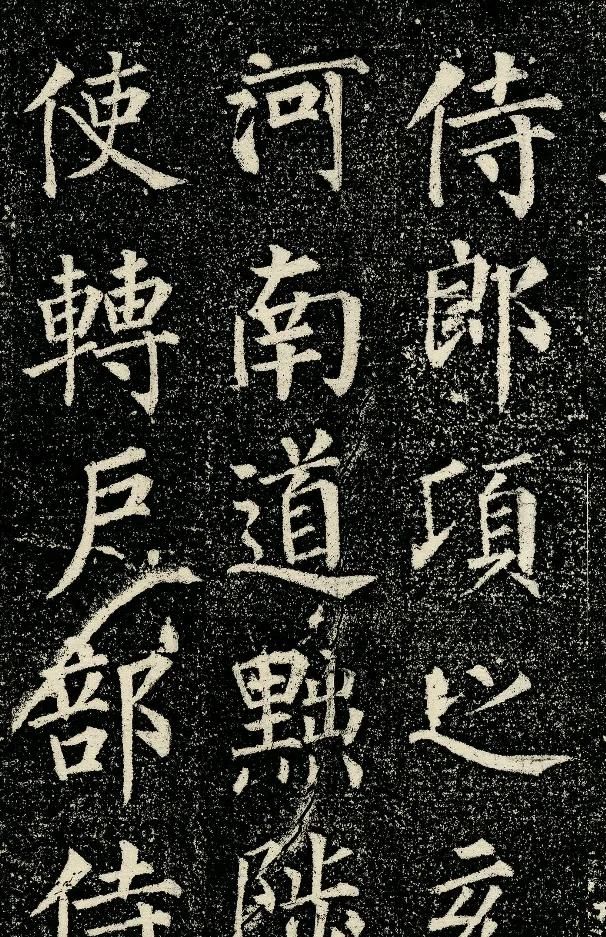 侍郎頃之充
河南道黜陟
使轉戶部侍